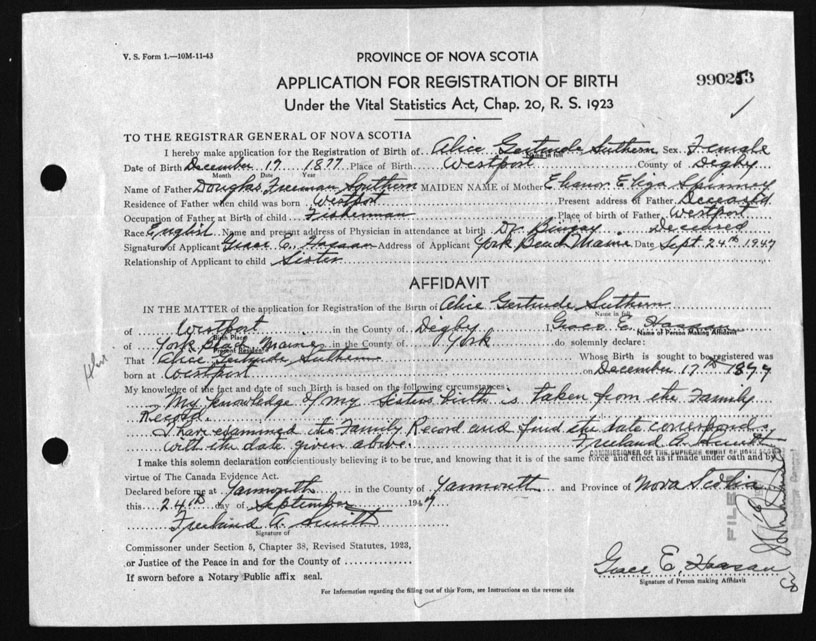 V. S. Form 1.—10M-11-43
PROVINCE OF NOVA SCOTIA
APPLICATION FOR REGISTRATION OF BIRTH
990253
Under the Vital Statistics Act, Chap. 20, R. S. 1923
TO THE REGISTRAR GENERAL OF NOVA SCOTIA
I hereby make application for the Registration of Birth of Alice Gertrude Suthern Sex Female
Name in full
Date of Birth December 17 1877 Place of Birth Westport County of Degby
Month Date Year
Name of Father Douglas Freeman Southern MAIDEN NAME of Mother Eliza
Residence of Father when child was born Westport Present address of Father Deceased
Occupation of Father at Birth of child Fisherman Place of birth of Father Westport
Race English Name and present address of Physician in attendance at birth Dr. Deceased
Signature of Applicant Grace E. Address of Applicant York Beach Maine Date Sept 24th 1947
Relationship of Applicant to child Sister
AFFIDAVIT
IN THE MATTER of the application for Registration of the Birth of Alice Gertrude Suthern
Name in full
of Westport in the County of Degby I, Grace E.
Birth Place Name of Person Making Affidavit
of York Beach Maine in the County of York do solemnly declare:
Present Residence
That Alice Gertrude Suthern Whose Birth is sought to be registered was
born at Westport on December 17th 1877
My knowledge of the fact and date of such Birth is based on the following circumstances:
My knowledge of my sisters birth is taken from the Family
Record.
I have examined the Family Record and find the date corresponds
with the date given above. Freeland A. Smith
COMMISSIONER OF THE SUPREME COURT OF NOVA SCOTIA
I make this solemn declaration conscientiously believing it to be true, and knowing that it is of the same force and effect as if made under oath and by
virtue of The Canada Evidence Act.
Declared before me at Yarmouth in the County of Yarmouth and Province of Nova Scotia
this 24th day of September 1947
Freeland A. Smith
Signature of
Commissoner under Section 5, Chapter 38, Revised Statutes, 1923,
or Justice of the Peace in and for the County of
If sworn before a Notary Public affix seal.
FILED
Grace E.
Signature of Person making Affidavit
For Information regarding the filling out of this Form, see Instructions on the reverse side